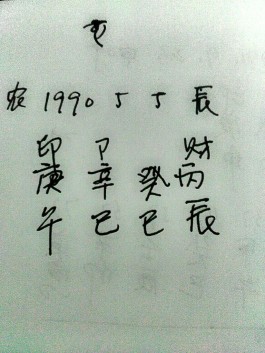 农 1990 5 5 辰
印 卩 财
庚 辛 癸 丙
午 巳 巳 辰